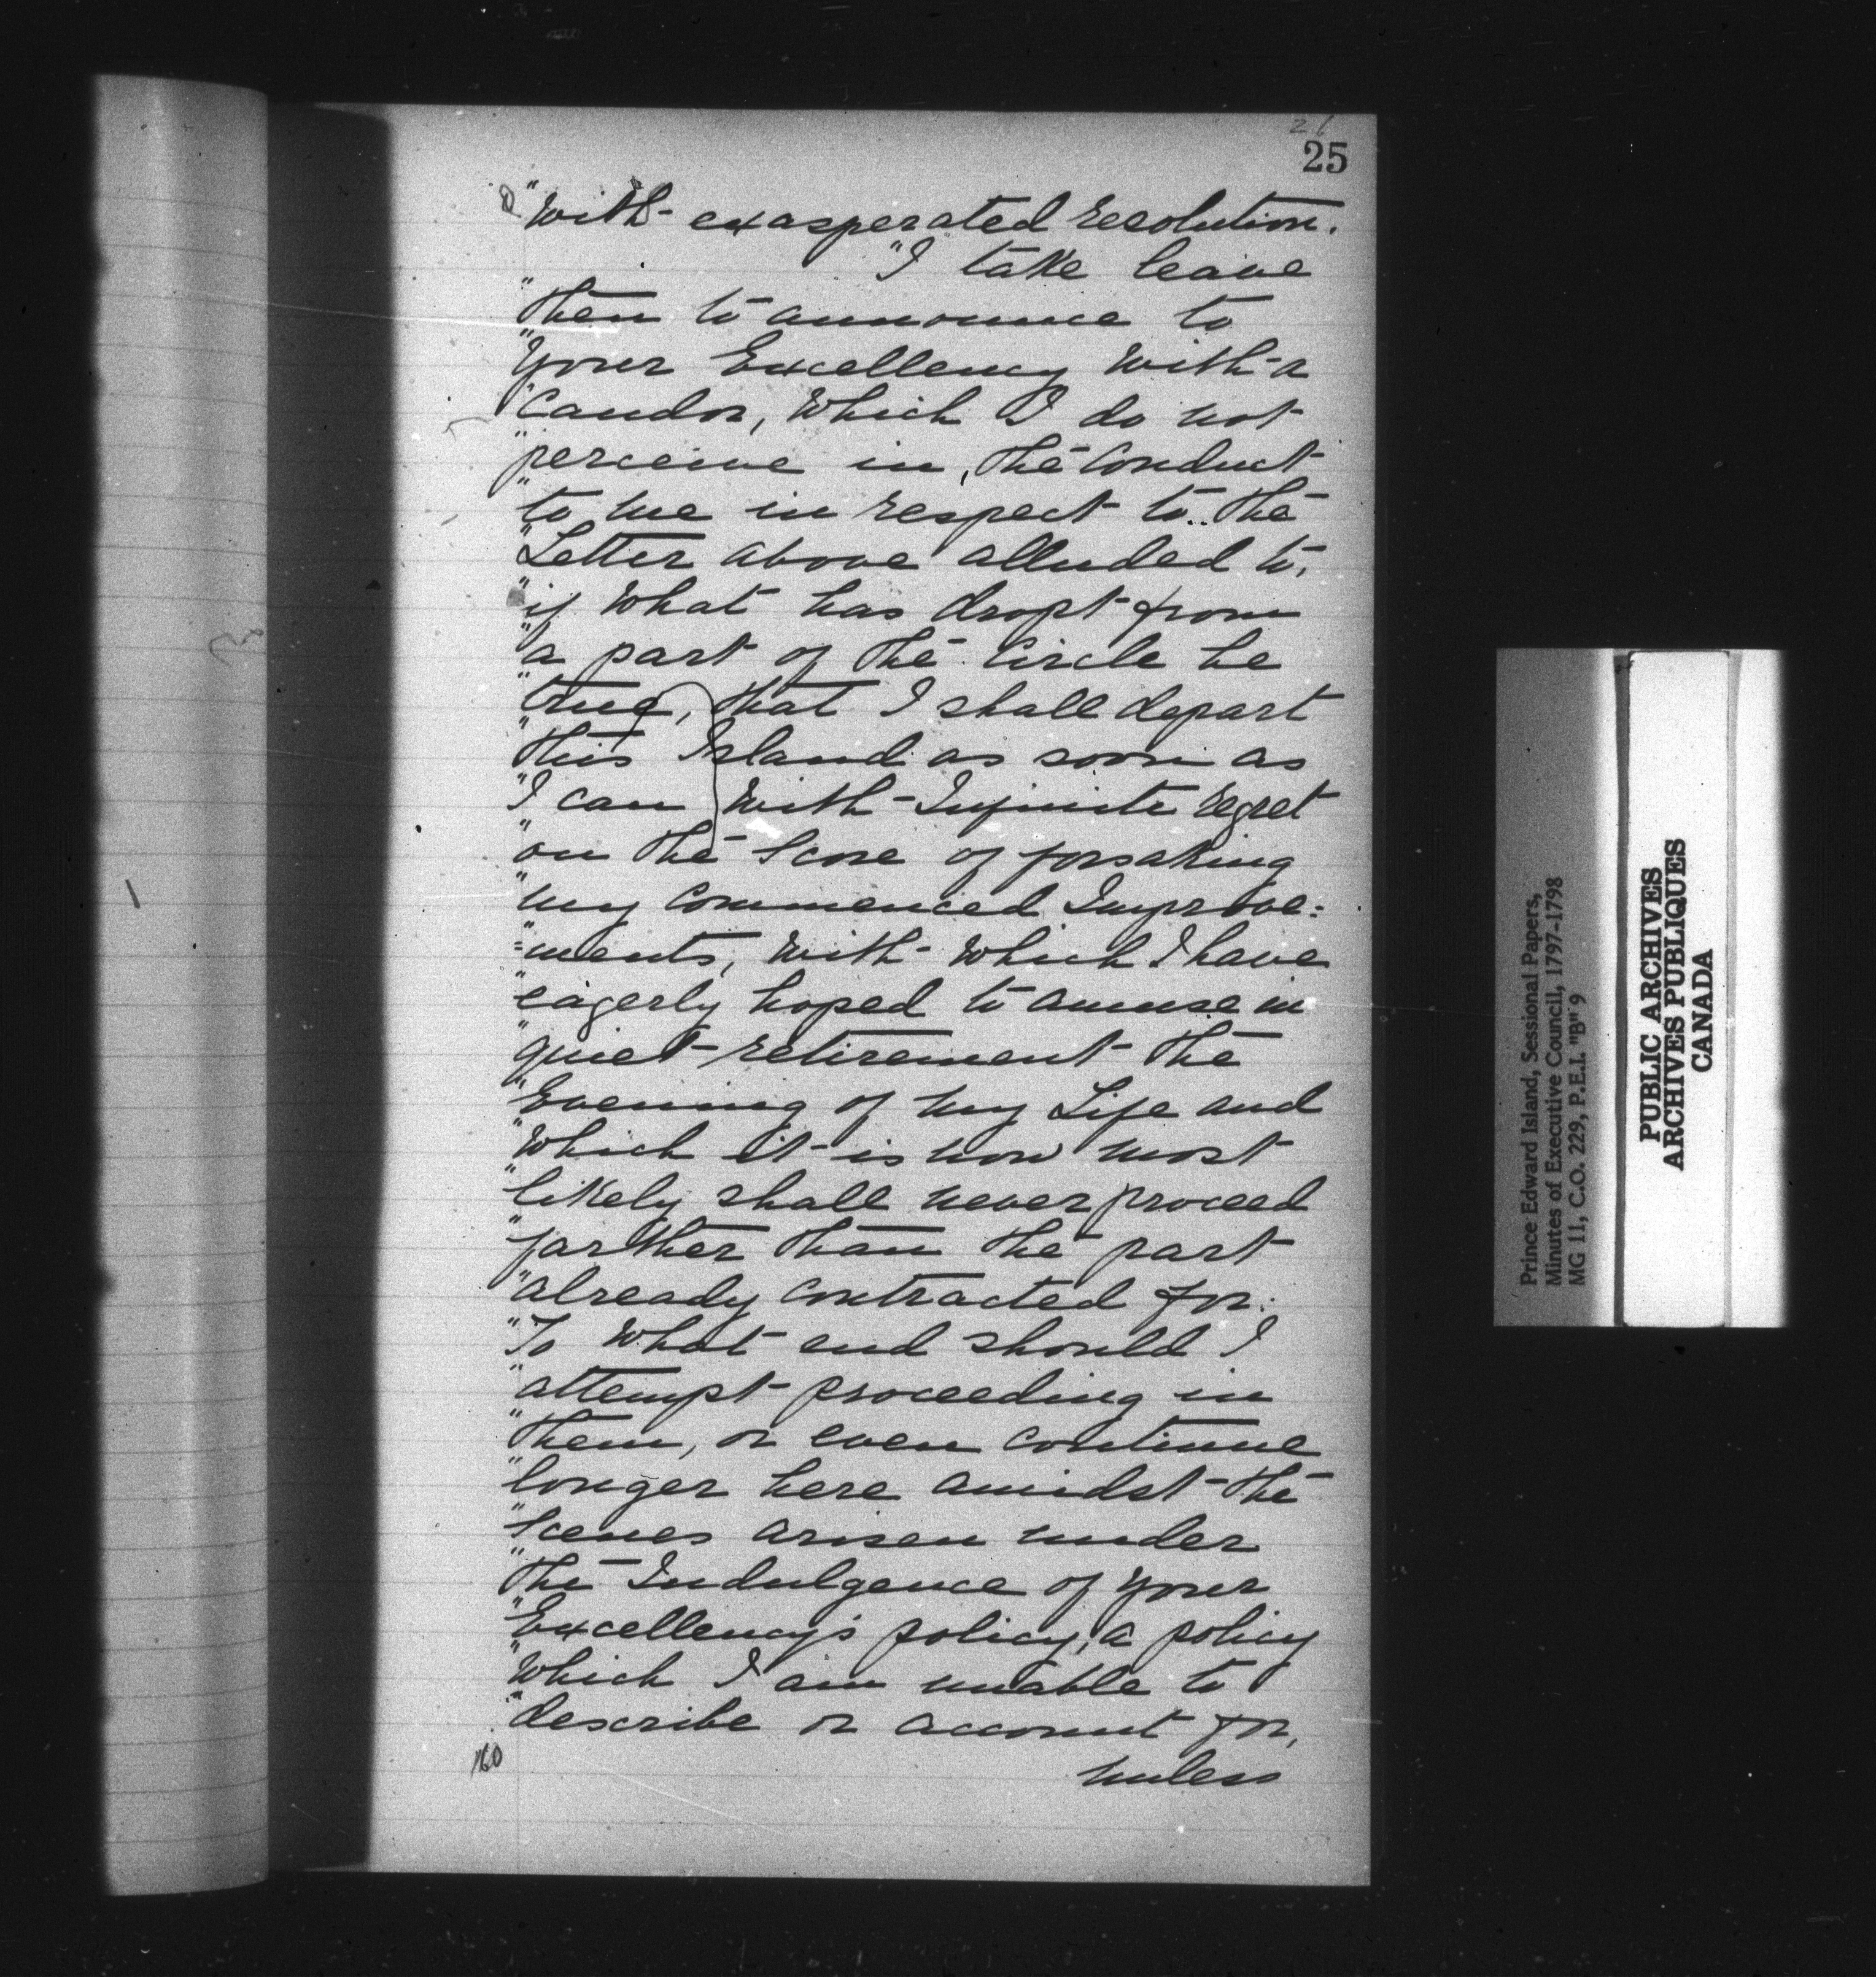 26
25
"With exasperated resolution.
"I take leave
"then to announce to
"Your Excellency With a
"Candor, Which I do not
"perceive in, the Conduct
"to me in respect to the
"Letter above alluded to,
"if What has dropt from
"a part of the Circle be
"true, that I shall depart
"this Island as soon as
"I can With Infinite regret
"on the Score of forsaking
"my Commenced Improve=
"=ments, With Which I have
"eagerly hoped to amuse in
"quiet retirement the
"Evening of my Life and
"Which it is now most
"likely shall never proceed
"farther than the part
"already Contracted for.
"To What end should I
"attempt proceeding in
"them, or even continue
"longer here amidst the
"Scenes arisen under
"the Indulgence of Your
"Excellency's policy, a policy
"Which I am unable to
"describe or account for,
unless
160
Prince Edward Island, Sessional Papers,
Minutes of Executive Council, 1797-1798
MG 11, C.O. 229, P.E.I. "B" 9
PUBLIC ARCHIVES
ARCHIVES PUBLIQUES
CANADA